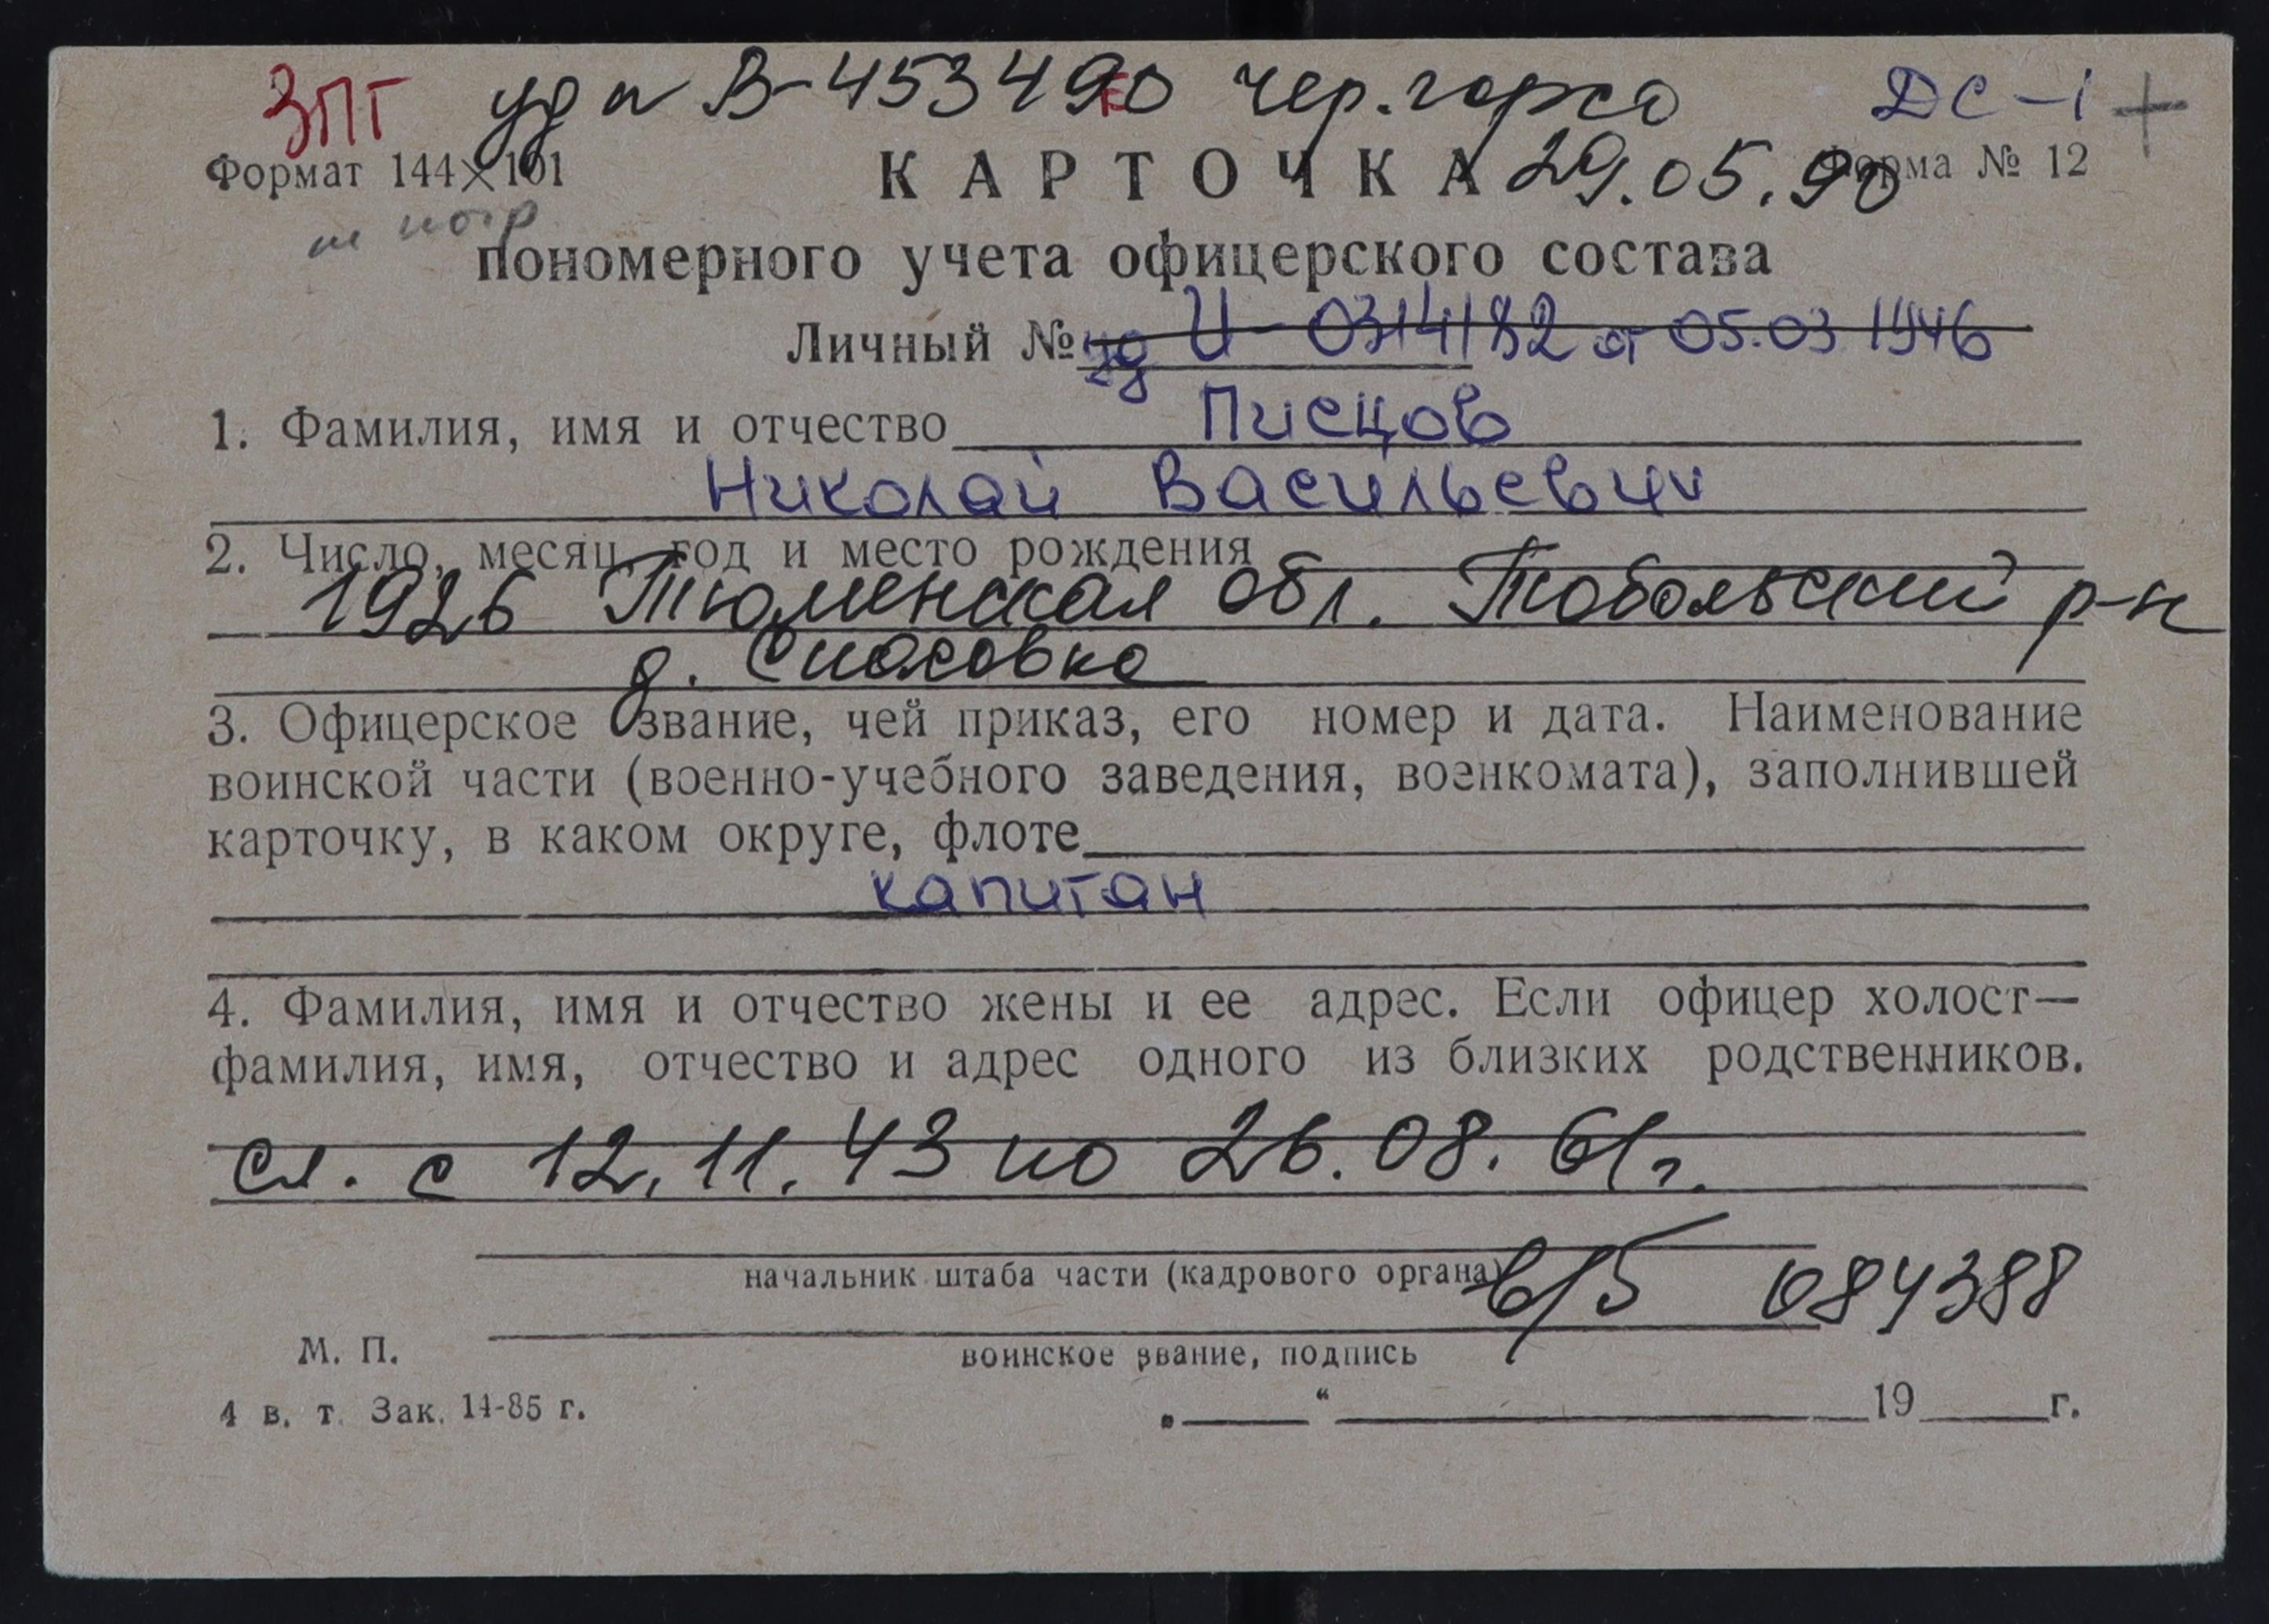 ЗПГ уд л В-453490 чер. горсо ДС-1 +
Формат 144×101 КАРТОЧКА 29.05.90 Форма № 12
пономерного учета офицерского состава
Личный № уд И-0314182 от 05.03 1946
1. Фамилия, имя и отчество Писцов
Николай Васильевич
2. Число, месяц, год и место рождения
1926 Тюменская обл. Тобольский р-н
д. Спасовка
3. Офицерское звание, чей приказ, его номер и дата. Наименование
воинской части (военно-учебного заведения, военкомата), заполнившей
карточку, в каком округе, флоте
капитан
4. Фамилия, имя и отчество жены и ее адрес. Если офицер холост—
фамилия, имя, отчество и адрес одного из близких родственников.
сл. с 12.11.43 по 26.08.61г.
начальник штаба части (кадрового органа) в/б 084388
М. П.
воинское звание, подпись
4 в. т. Зак. 14-85 г. „ “ 19 г.